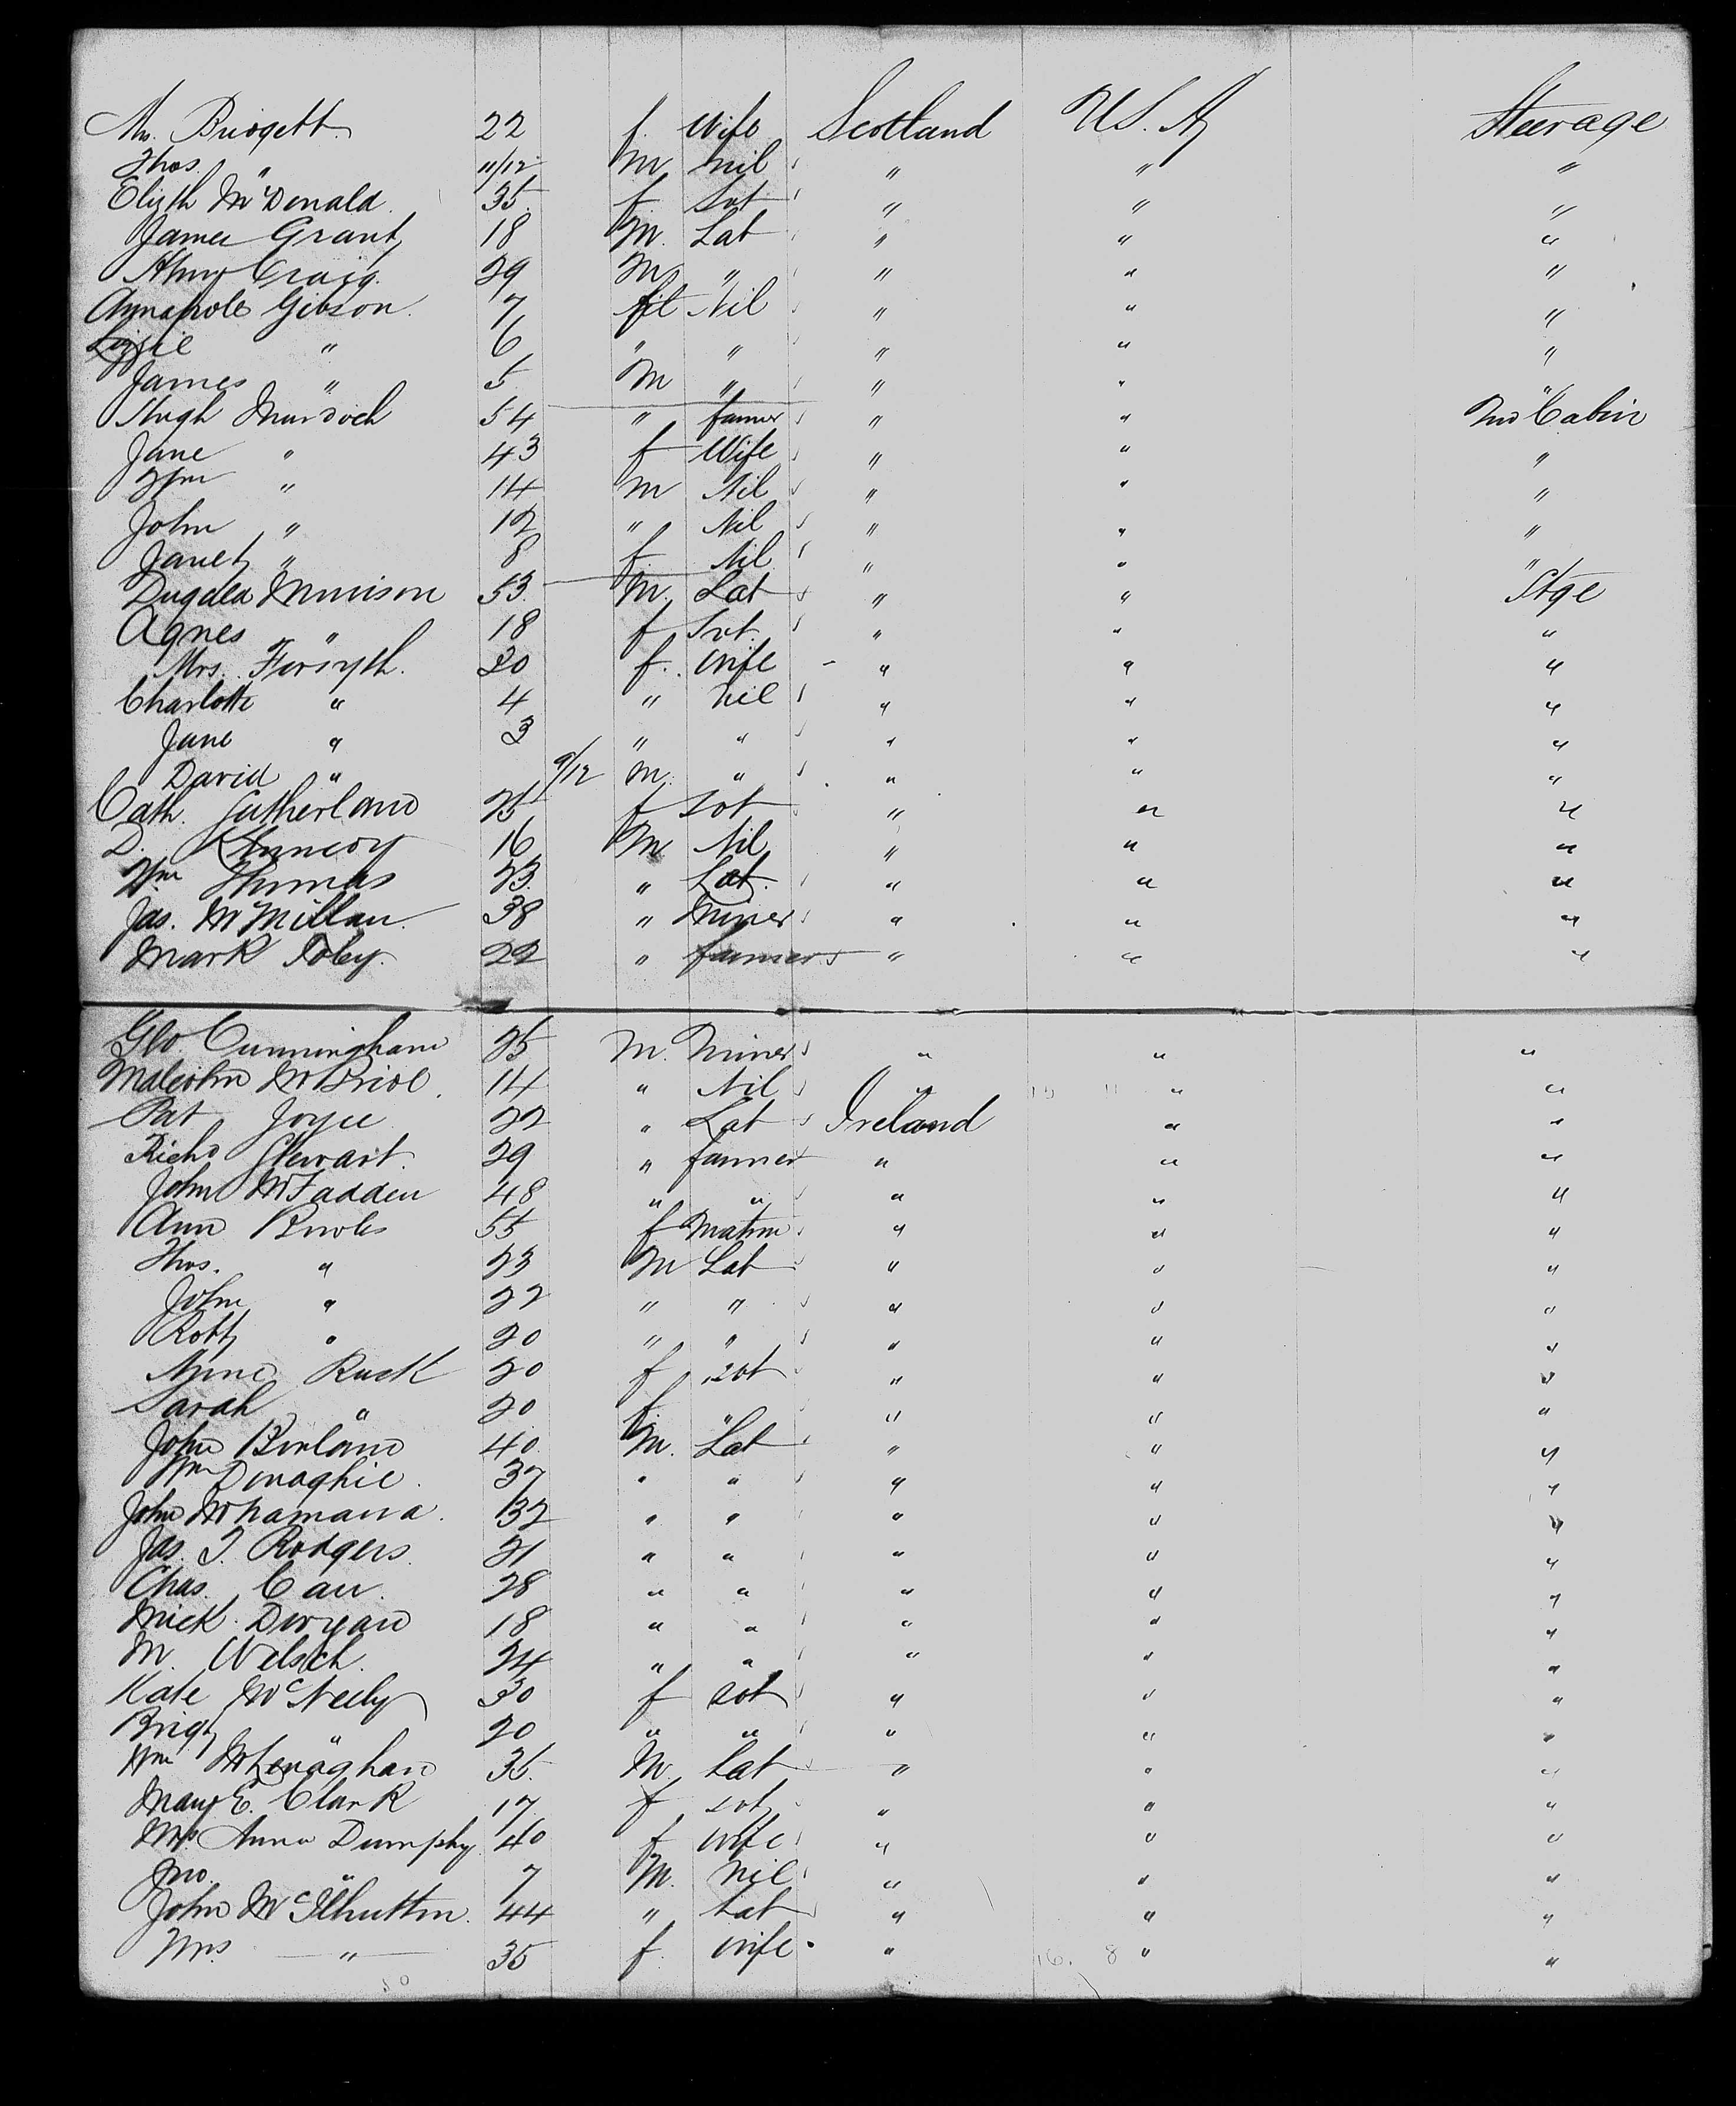 Mrs. Bridgett 22 f. Wife Scotland U.S.A Steerage
Thos. " 11/12 M nil " " "
Elizth McDonald 35 f Svt " " "
James Grant 18 M. Lab " " "
Henry Craig 29 M " " " "
Gibson 7 f Nil " " "
Lizzie " 6 " " " " "
James " 5 M " " " "
Hugh Murdoch 54 " farmer " " 2nd Cabin
Jane " 43 f Wife " " "
Wm " 14 M Nil " " "
John " 12 " Nil " " "
Janet " 8 f Nil " " "
Dugald Morrison 53 M. Lab " " Stge
Agnes " 18 f Svt. " " "
Mrs. Forsyth. 30 f. wife " " "
Charlotte " 4 " nil " " "
Jane " 3 " " " " "
David " 9/12 M. " " " "
Cath. Sutherland 25 f Svt " " "
D. Kennedy 16 M Nil " " "
Wm Thomas 23. " Lab. " " "
Jas. McMillan 38 " Miner " " "
Mark Toley. 22 " farmer " " "
Geo Cunningham 25 M. Miner " " "
Malcolm McBride 14 " Nil " " "
Pat Joyce 22 " Lab Ireland " "
Richd Stewart. 29 " farmer " " "
John McFadden 48 " " " " "
Ann Bowles 55 f Matron " " "
Thos. " 23 M Lab " " "
John " 22 " " " " "
Robt " 20 " " " " "
Anne Rusk 20 f svt " " "
Sarah " 20 f " " " "
John Borland 40 M. Lab " " "
Wm Donaghie 37 " " " " "
John McNamara. 32 " " " " "
Jas. T. Rodgers 21 " " " " "
Chas. Carr 28 " " " " "
Mick. Dorgan 18 " " " " "
M. Welsch. 24 " " " " "
Kate McNeely 30 f svt " " "
Brigt " 20 " " " " "
Wm McLenaghan 35. M. Lab " " "
Mary E. Clark 17 f svt " " "
Mrs Anna Dumphy 40 f wife " " "
Jno. " 7 M. nil " " "
John 44 " Lab " " "
Mrs. " 35 f. wife " " "